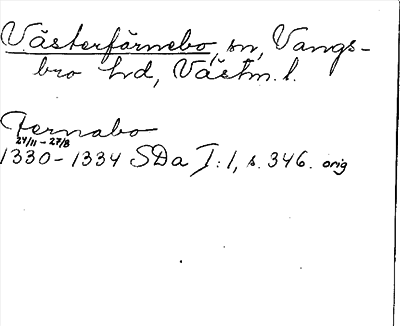 Västerfärnebo, sn, Vangs-
bro hd, Västm. l.
Fernabo
24/11 - 27/8
1330-1334 SDa I:1, s. 346. orig